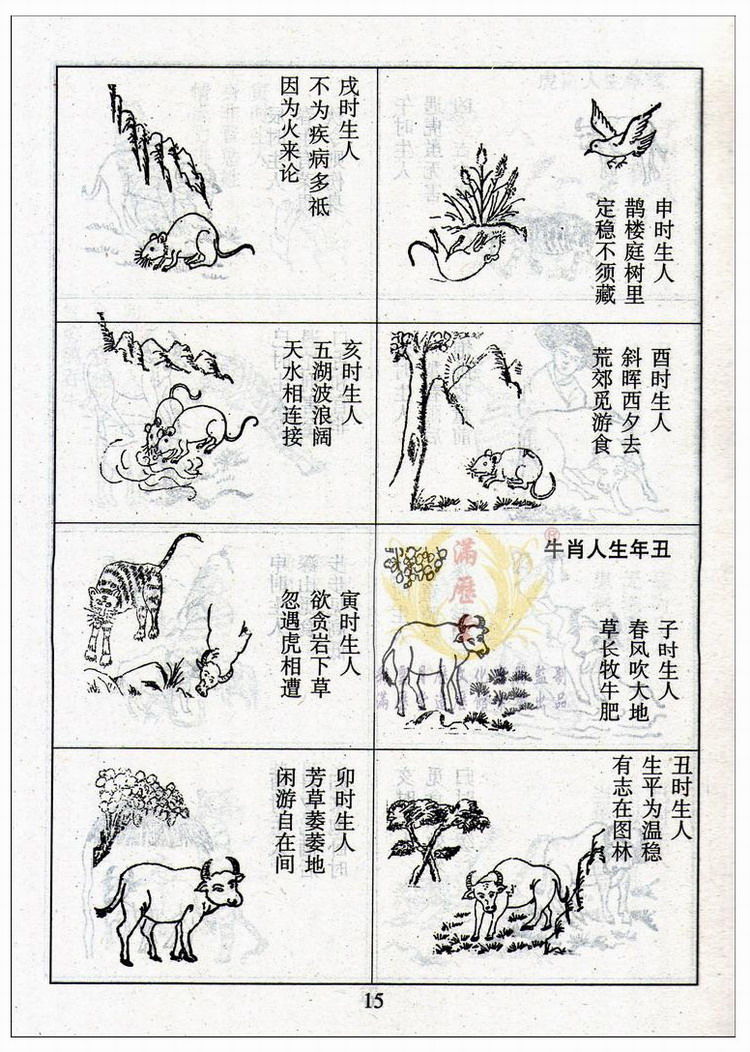 申时生人
鹊楼庭树里
定稳不须藏
酉时生人
斜晖西夕去
荒郊觅游食
戌时生人
不为疾病多祗
因为火来论
亥时生人
五湖波浪阔
天水相连接
丑年生人肖牛
子时生人
春风吹大地
草长牧牛肥
丑时生人
生平为温稳
有志在图林
寅时生人
欲贪岩下草
忽遇虎相遭
卯时生人
芳草萋萋地
闲游自在间
15